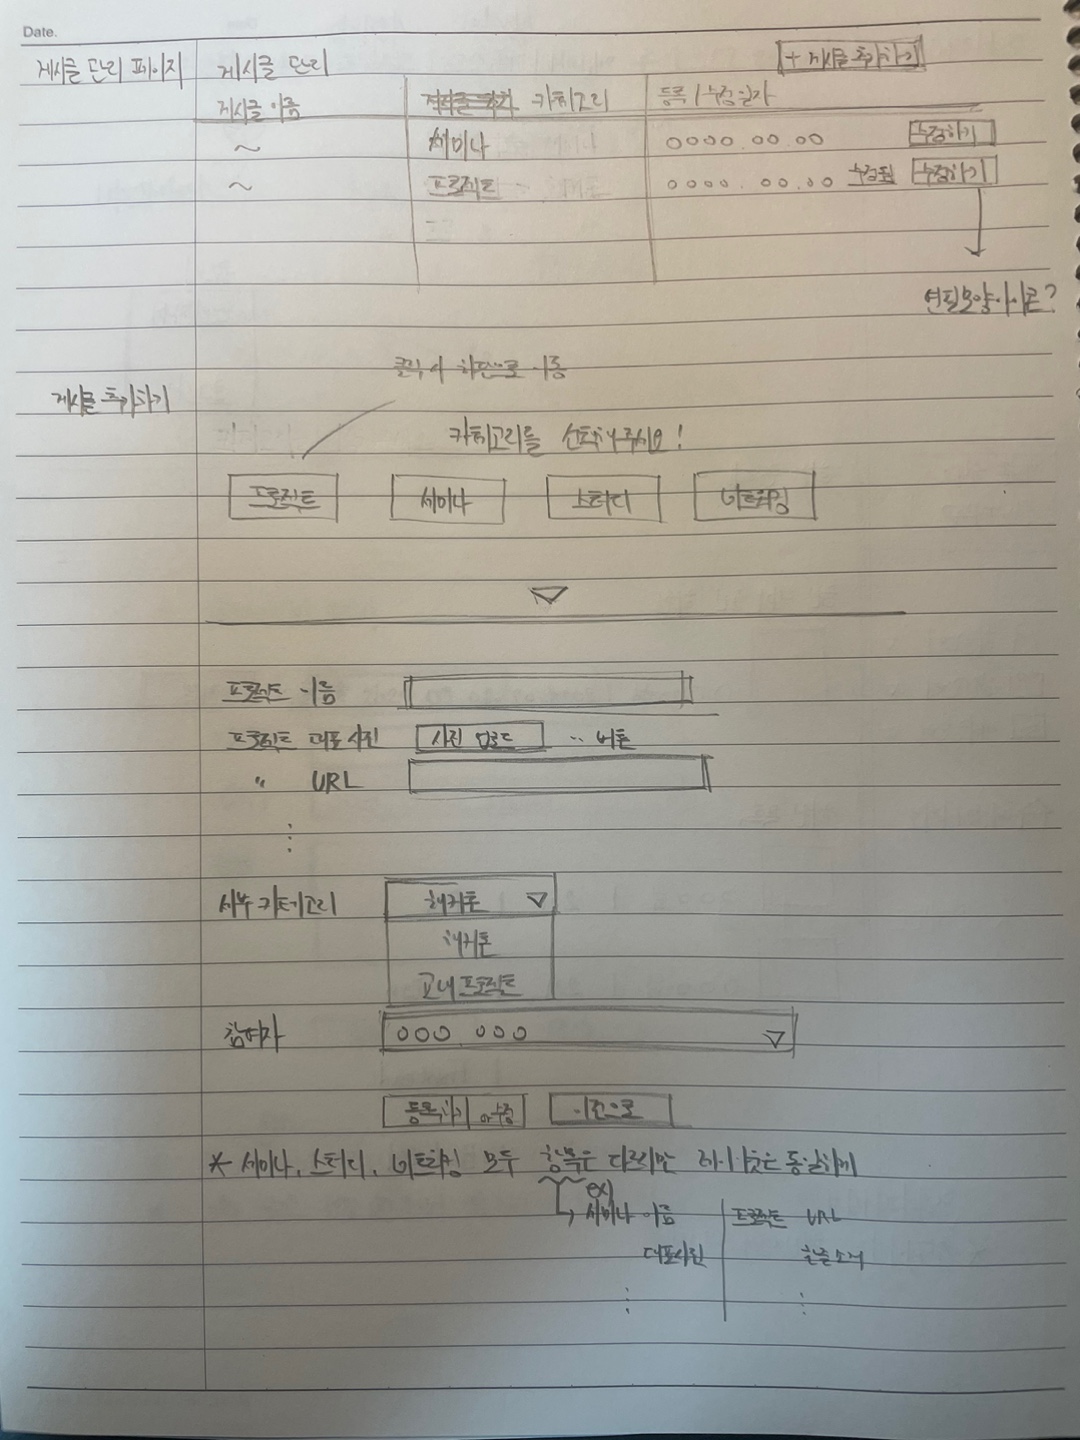 Date.
게시글 관리 페이지
게시글 관리
+ 게시글 추가하기
게시글 이름
카테고리
등록 / 수정 일자
~
세미나
0000.00.00
수정하기
~
프로젝트
0000.00.00 수정됨
수정하기
연필모양 아이콘?
클릭 시 하단으로 이동
게시글 추가하기
카테고리를 선택해주세요!
프로젝트
세미나
스터디
네트워킹
프로젝트 이름
프로젝트 대표 사진
사진 업로드
·· 버튼
" URL
세부 카테고리
해커톤
해커톤
교내 프로젝트
참여자
000 000
등록하기 or 수정
이전으로
* 세미나, 스터디, 네트워킹 모두 항목은 다르지만 레이아웃은 동일하게
ex)
→ 세미나 이름
프로젝트 URL
대표사진
한줄소개